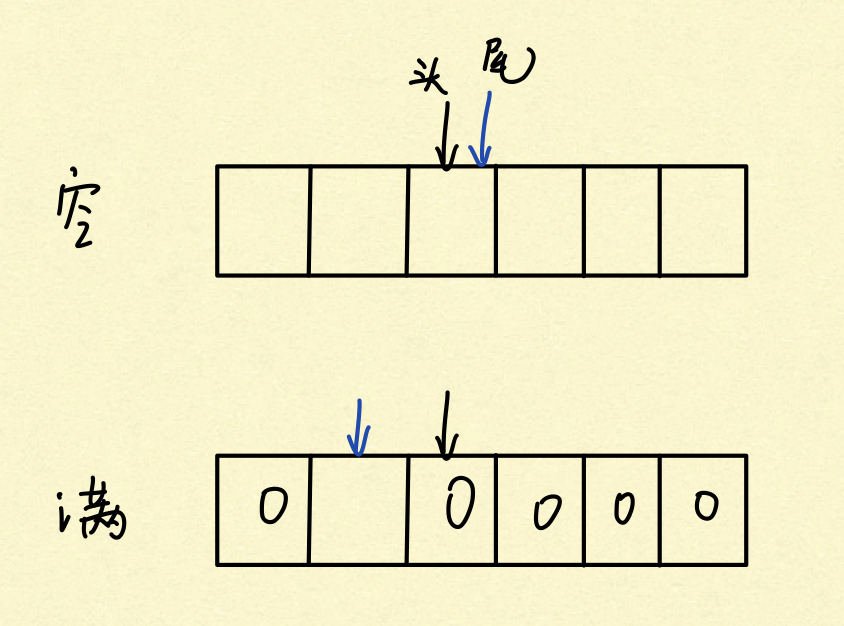 头 尾
空
满
0 0 0 0 0